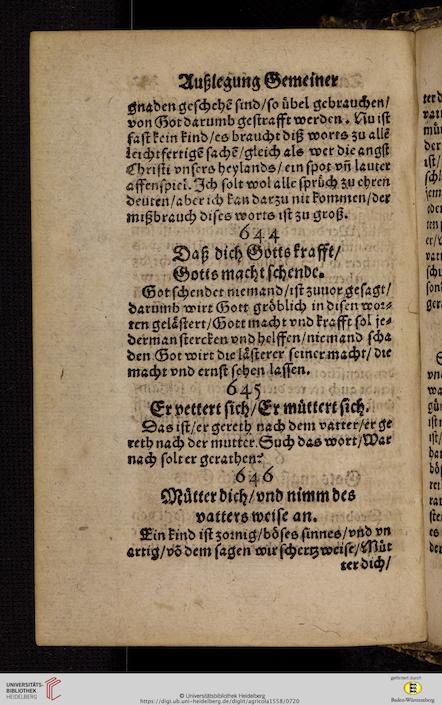 Außlegung Gemeiner
gnaden geschehẽ sind/so übel gebrauchen/
von Got darumb gestrafft werden. Nu ist
fast kein kind/es braucht diß worts zu allẽ
leichtfertigẽ sachẽ/gleich als wer die angst
Christi vnsers heylands/ein spot vñ lauter
affenspiel. Ich solt wol alle sprüch zu ehren
deuten/aber ich kan darzu nit kommen/der
mißbrauch dises worts ist zu groß.
644
Daß dich Gotts krafft/
Gotts macht schende.
Got schendet niemand/ist zuuor gesagt/
darumb wirt Gott gröblich in disen wor⸗
ten gelästert/Gott macht vnd krafft sol je⸗
derman stercken vnd helffen/niemand scha
den Got wirt die lästerer seiner macht/die
macht vnd ernst sehen lassen.
645
Er vettert sich/Er müttert sich.
Das ist/er gereth nach dem vatter/er ge
reth nach der mutter. Such das wort/War
nach solt er gerathen?
646
Mütter dich/vnd nimm des
vatters weise an.
Ein kind ist zornig/böses sinnes/vnd vn
artig/võ dem sagen wir schertzweise/Müt
ter dich/
UNIVERSITÄTS-
BIBLIOTHEK
HEIDELBERG
© Universitätsbibliothek Heidelberg
https://digi.ub.uni-heidelberg.de/diglit/agricola1558/0720
gefördert durch
Baden-Württemberg